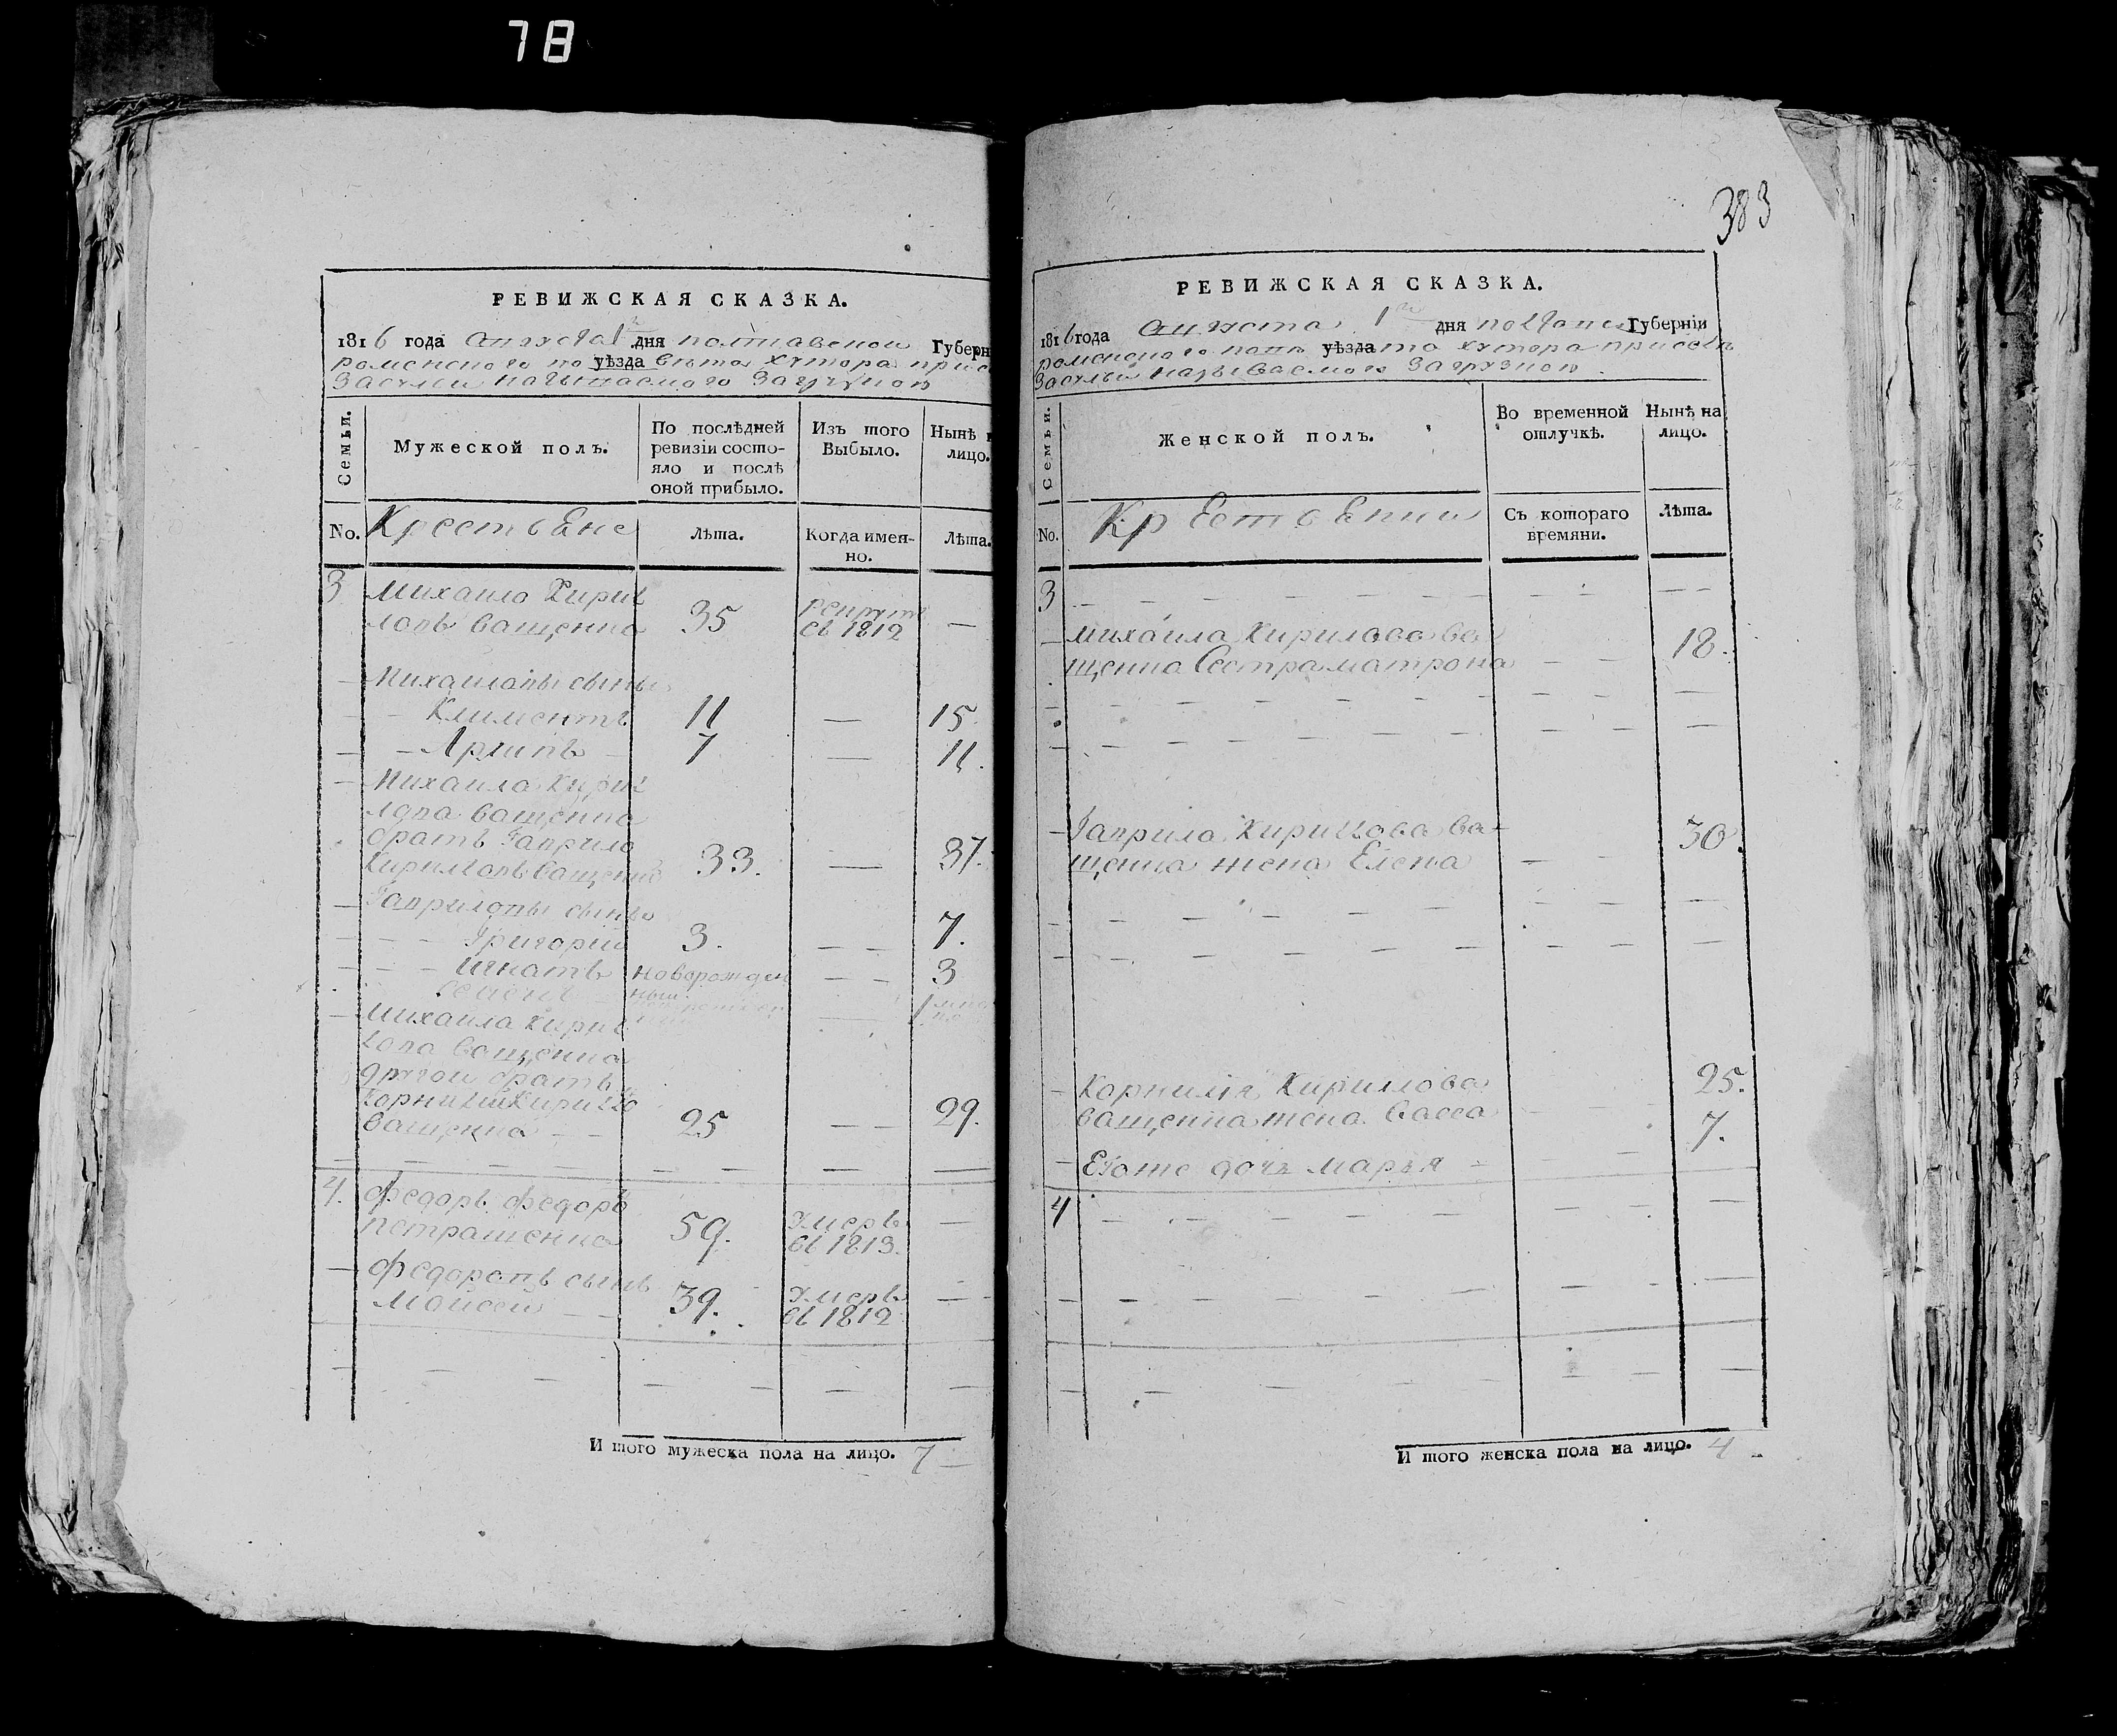 78
383
РЕВИЖСКАЯ СКАЗКА.
1816 года августа 1 дня полтавской Губерн
роменского по уѣзда вѣта хутора приса
Засулы называемого Загрузной
Семьи.
Мужеской полъ.
По послѣдней ревизіи состо-
яло и послѣ оной прибыло.
Изъ того Выбыло.
Нынѣ н
лицо.
No.
Крестьяне
Лѣта.
Когда имен-
но.
Лѣта.
3 Михаило Кирил
ловъ Ващенко 35 рекрутъ въ 1812 —
— Михаиловы сыны
— — Климентъ 11 — 15.
— — Архипъ 7 — 11.
— Михаила Кирил
лова Ващенка
братъ Гаврило
Кирилловъ Ващенко 33. — 37.
— Гавриловы сыны
— — — Григорій 3. — — 7.
— — — Игнатъ новорожден
ный — — 3
Семенъ — 1
— Михаила Кирил
лова Ващенка
другой братъ
Корнилій Кирилло
Ващенко — — 25 — — 29.
4. Федоръ Федоровъ
Петрашенко 59. умеръ въ 1813. —
— Федоровъ сынъ
Мойсей — 39. умеръ въ 1812 — —
И того мужеска пола на лицо. 7 —
РЕВИЖСКАЯ СКАЗКА.
1816 года августа 1 дня полтавс Губерніи
роменского повѣ уѣзда та хутора присел
Засулы называемого Загрузной.
Семьи.
Женской полъ.
Во временной
отлучкѣ.
Нынѣ на
лицо.
No.
Крестьянки
Съ котораго
времяни.
Лѣта.
3 — — — — — — — —
— Михаила Кирилова Ва
щенка Сестра Матрона — — 18.
— Гаврила Кирилова Ва-
щенка жена Елена — — 30.
— Корнилія Кириллова
Ващенка жена Васса — — 25.
— Егоже дочь Марья — — 7.
4 — — — — — — — —
И того женска пола на лицо. 4 —